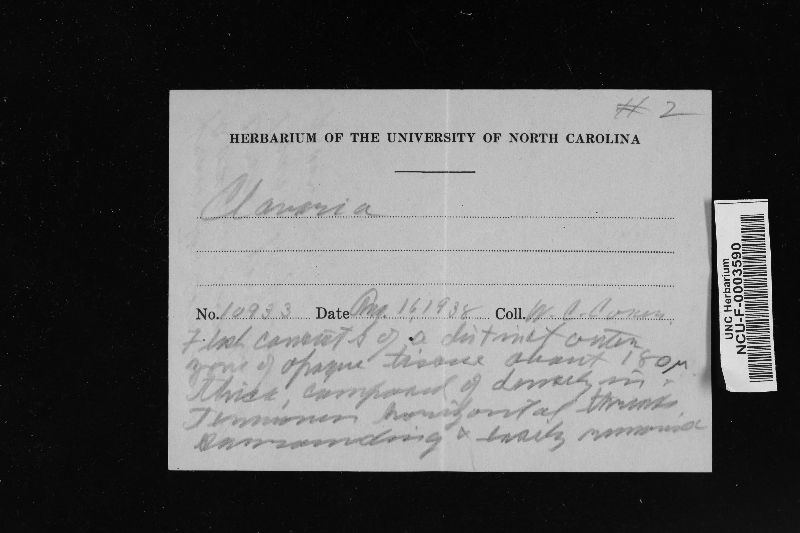 # 2
HERBARIUM OF THE UNIVERSITY OF NORTH CAROLINA
Clavaria
No. 10933 Date Aug. 16, 1938 Coll. W. C. Coker
Flesh consists of a distinct outer
zone of opaque tissue about 180 µ
thick, composed of densely in-
terwoven horizontal threads
surrounding & easily removed
UNC Herbarium
NCU-F-0003590